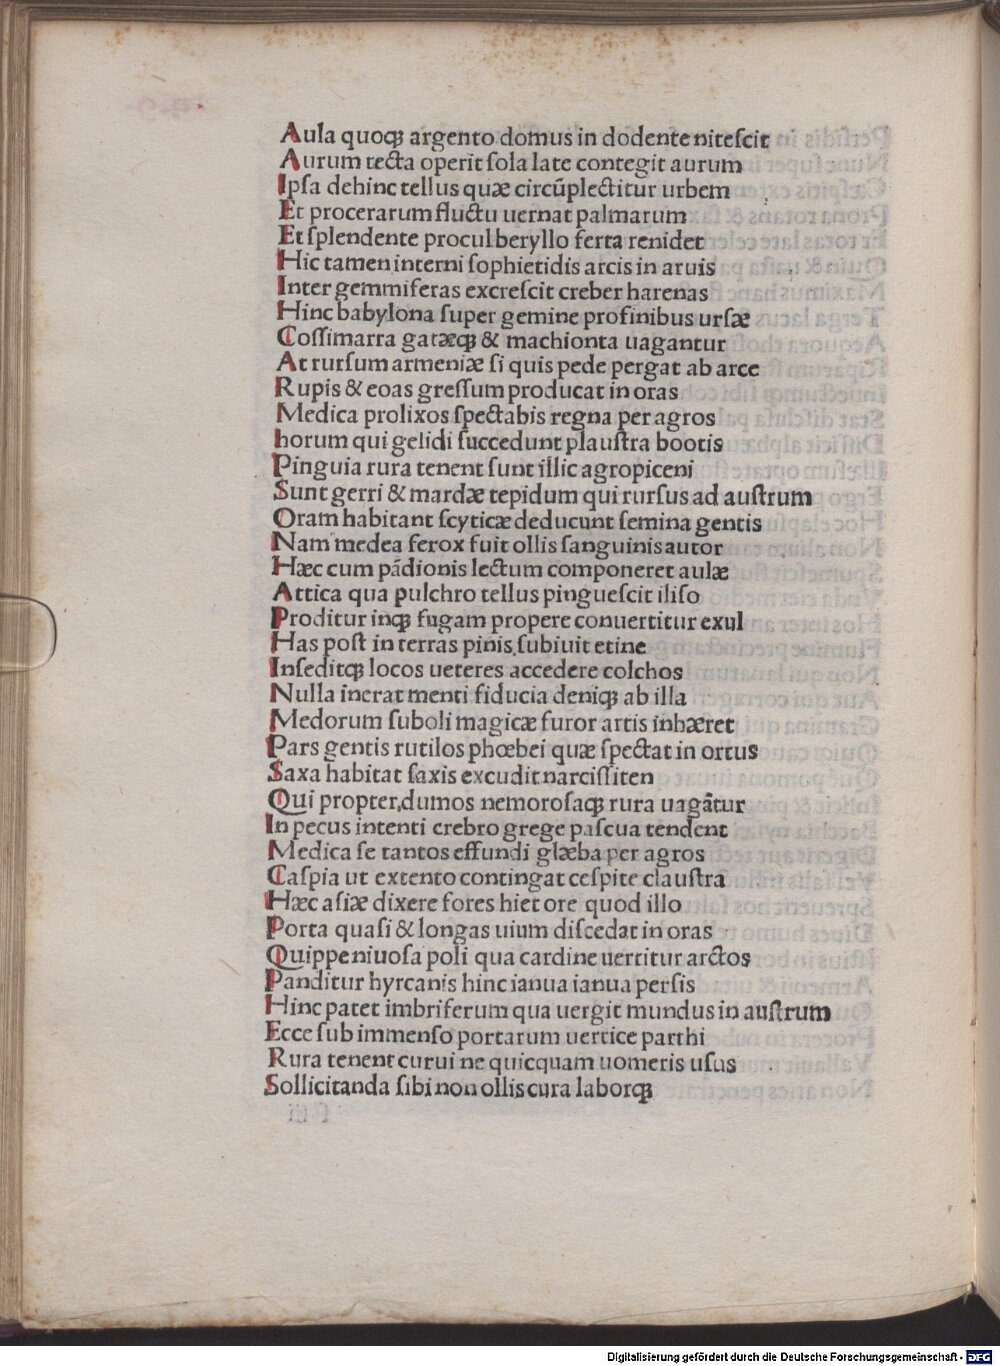 Aula quoqꝫ argento domus in dodente nitеſcit
Aurum tecta operit ſola late contegit aurum
Ipſa dehinc tellus quæ circūplectitur urbem
Et procerarum fluctu uernat palmarum
Et ſplendente procul beryllo ferta renidet
Hic tamen interni ſophietidis arcis in aruis
Inter gemmiferas excreſcit creber harenas
Hinc babylona ſuper gemine profinibus urſæ
Coſſimarra gatæqꝫ & machionta uagantur
At rurſum armeniæ ſi quis pede pergat ab arce
Rupis & eoas greſſum producat in oras
Medica prolixos ſpectabis regna per agros
horum qui gelidi ſuccedunt plauſtra bootis
Pinguia rura tenent ſunt illic agropiceni
Sunt gerri & mardæ tepidum qui rurſus ad auſtrum
Oram habitant ſcyticæ deducunt ſemina gentis
Nam medea ferox fuit ollis ſanguinis autor
Hæc cum pādionis lectum componeret aulæ
Attica qua pulchro tellus pingueſcit iliſo
Proditur inqꝫ fugam propere conuertitur exul
Has poſt in terras pinis ſubiuit etine
Inſeditqꝫ locos ueteres accedere colchos
Nulla inerat menti fiducia deniqꝫ ab illa
Medorum ſuboli magicæ furor artis inhæret
Pars gentis rutilos phœbei quæ ſpectat in ortus
Saxa habitat ſaxis excudit narciſſiten
Qui propter dumos nemoroſaqꝫ rura uagātur
In pecus intenti crebro grege paſcua tendent
Medica ſe tantos effundi glæba per agros
Caſpia ut extento contingat ceſpite clauſtra
Hæc aſiæ dixere fores hiet ore quod illo
Porta quaſi & longas uium diſcedat in oras
Quippe niuoſa poli qua cardine uertitur arctos
Panditur hyrcanis hinc ianua ianua perſis
Hinc patet imbriferum qua uergit mundus in auſtrum
Ecce ſub immenſo portarum uertice parthi
Rura tenent curui ne quicquam uomeris uſus
Sollicitanda ſibi non ollis cura laborqꝫ
Digitalisierung gefördert durch die Deutsche Forschungsgemeinschaft - DFG